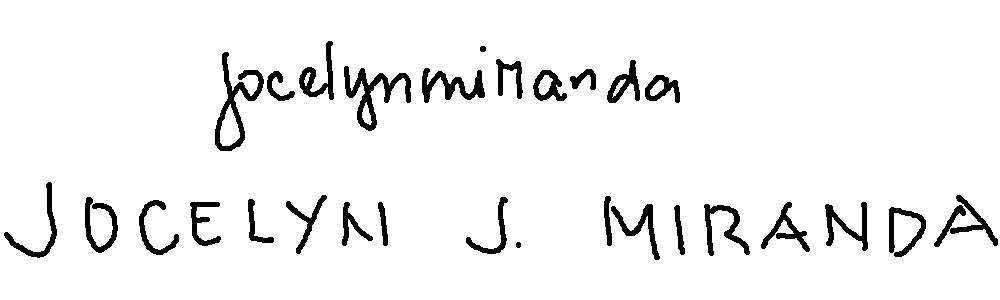 jocelynmiranda
JOCELYN J. MIRANDA